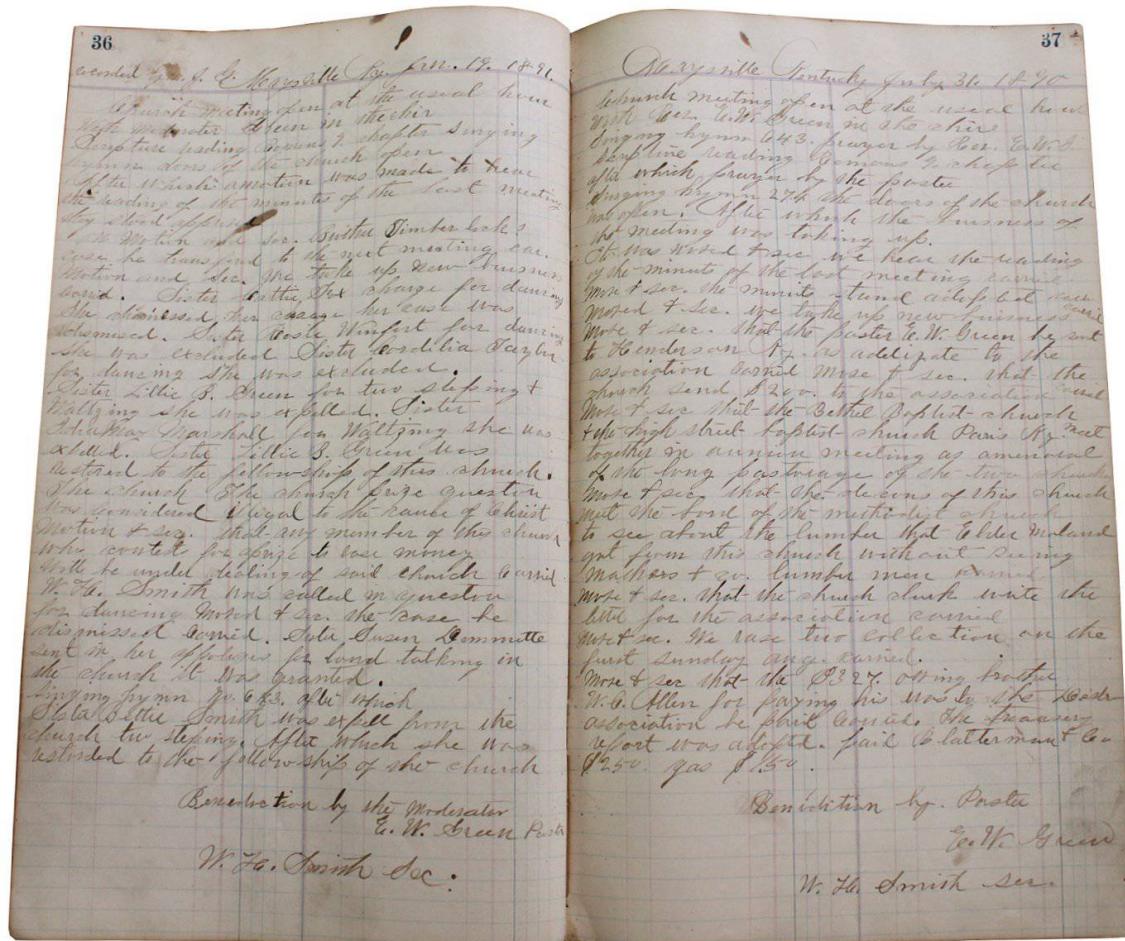 36
recorded Maysville Ky. Jan. 19. 1891.
Church meeting open at the usual hour
With Moderator Green in the chir
Scripture reading Romans 9 chapter singing
hymn doors of the church open
After which a motion was made to hear
the reading of the minutes of the last meeting
they stood
On Motion and sec. Timber lock s
case be transferd to the next meeting car.
Motion and sec. we take up new buisness
carrid. Sister Hattie Fox charge for dancing
She her charge her case was
dismised. Sister Winfort for dancing
she was excluded Sister Cordilia Taylor
for dancing she was excluded.
Sister Lillie B. Green for two steping &
Waltzing she was expelled. Sister
Marshall for Waltzing she was
exbelled. Sister Lillie B. Green was
restored to the fellowship of this church.
The church The church prize question
was considered illegal to the cause of Christ
Motion & sec. that any member of this church
who contests for a prize to rase money
will be under dealing of said church Carrid.
W. H. Smith was called in question
for dancing Moved & sec. the case be
dismissed Carried. Susen
sent in her appologies for loud talking in
the church it was granted.
Singing hymn No. 643. after which
Sista Bettie Smith was expell from the
church two steping. After which she was
restorded to the fellowship of the church
Benediction by the Moderator
E. W. Green Paster
W. H. Smith Sec.
37
Maysville Kentucky July 31. 1890
Church meeting open at the usual hour
with Rev. E. W. Green in the chire
Singing hymn 643. prayer by Rev. E. W. G.
scripture reading Romans 9 chapter
after which prayer by the paster
Singing hymn 274 the doors of the church
was open. After which the buisness of
the meeting was taking up.
It was moved & sec we hear the reading
of the minute of the last meeting carrid
Move & sec. the minute stand adopted
Moved & sec. we take up new buisness carrid
Move & sec. that the paster E. W. Green be sent
to Henderson Ky. as a deligate to the
association Carried Move & sec. that the
church send $2.00. to the association carrid
Move & sec that the Bethel Baptist church
& the high street baptist church Paris Ky. meet
together in meeting as
of the long pastorage of the two church
Move & sec. that the deacons of this church
meet the bord of the methodist church
to see about the lumber that Elder
got from this church without seeing
Mathers & Co. lumber men
Move & sec. that the church clerk write the
letter for the association carried
Move & sec. We rase two collection on the
first sunday aug. carried.
Move & sec that the $3.27. owing brother
W. C. Allen for paying his way to the
association be paid Carrid. The treasury
report was adopted. paid Clatterman & Co
$2.50. gas $1.50.
Benidition by. Paster
E. W. Green
W. H. Smith sec.